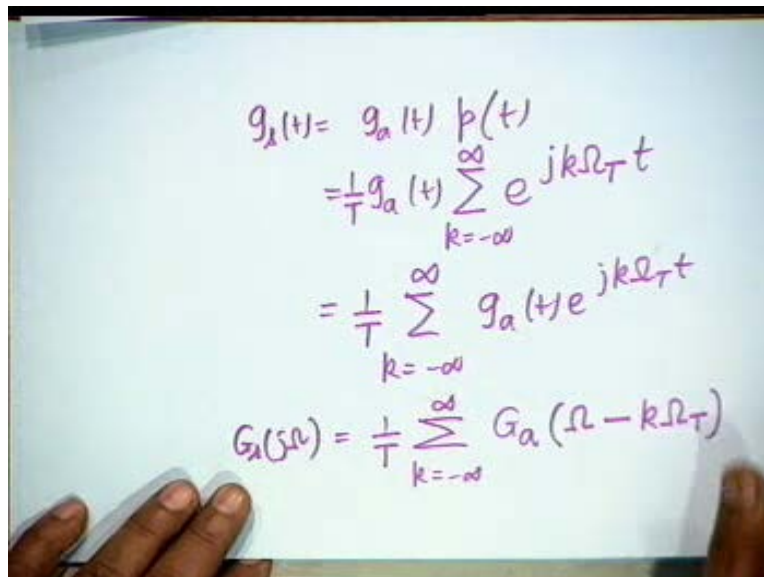 g_s(t) = g_a(t) p(t)
= 1/T g_a(t) ∑_{k=-∞}^{∞} e^{jkΩ_T t}
= 1/T ∑_{k=-∞}^{∞} g_a(t) e^{jkΩ_T t}
G_s(jΩ) = 1/T ∑_{k=-∞}^{∞} G_a(Ω - kΩ_T)